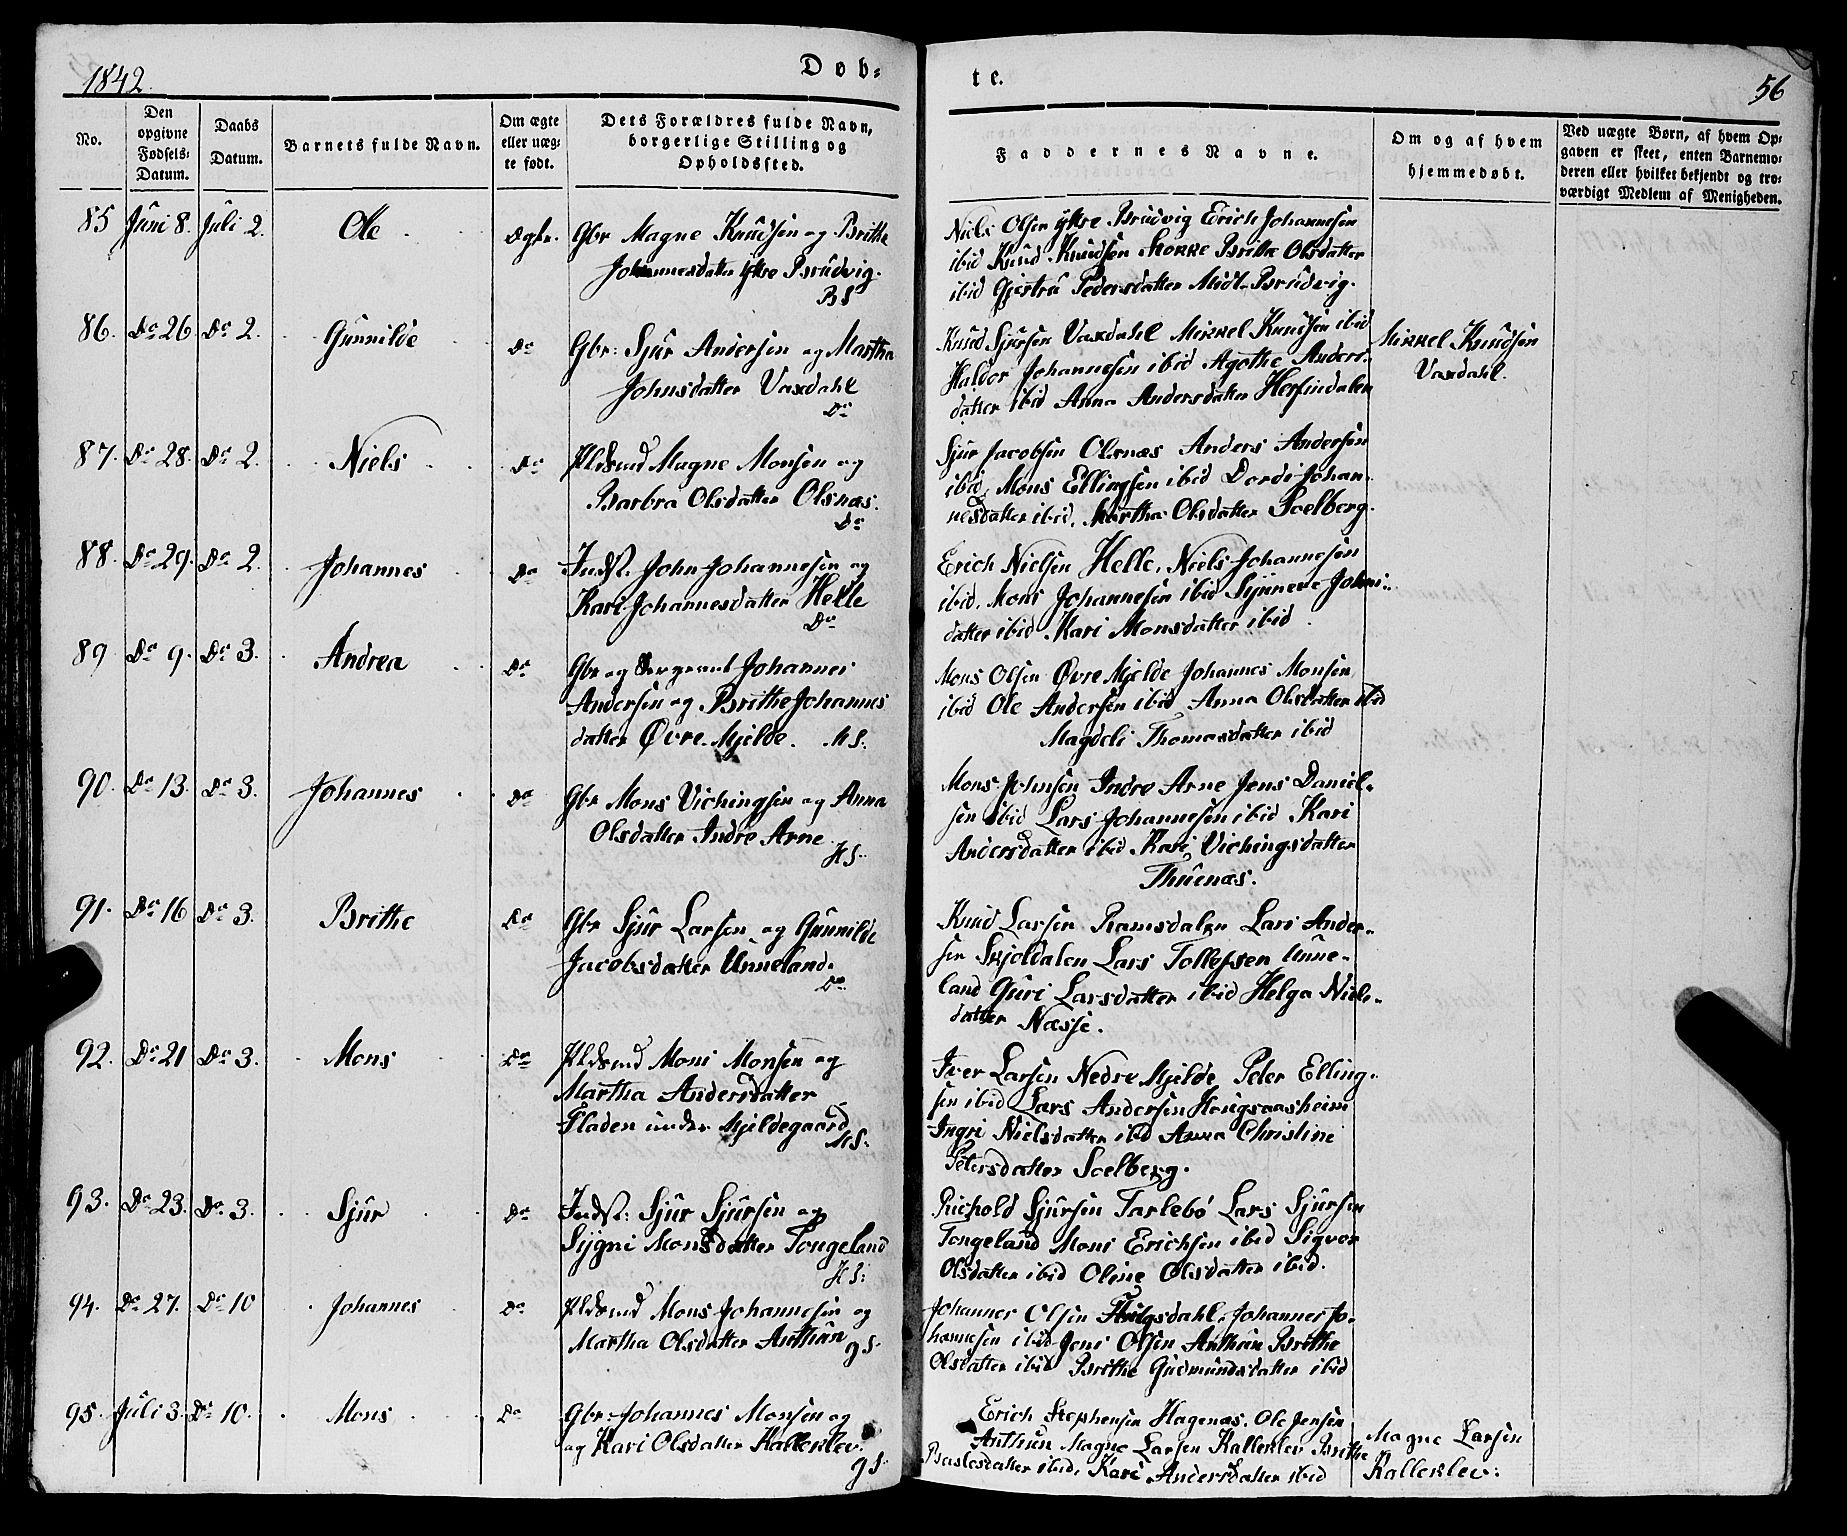 1842.
Døb-
te.
56
No.
Den opgivne Fødsels-Datum.
Daabs Datum.
Barnets fulde Navn.
Om ægte eller uægte født.
Dets Forældres fulde Navn, borgerlige Stilling og Opholdssted.
Faddernes Navne.
Om og af hvem hjemmedøbt.
Ved uægte Børn, af hvem Op-
gaven er skeet, enten Barnemo-
deren eller hvilket bekjendt og tro-
værdigt Medlem af Menigheden.
85 Juni 8. Juli 2. Ole Ægte. Gbr Magne Knudsen og Brithe
Johannesdatter Ytre Brudvig.
BS
Niels Olsen Ytre Brudvig Erich Johannesen
ibid Knud Knudsen Storke Brithe Olsdatter
ibid Gjertru Pedersdatter Midt-Brudvig.
86. Do 26. Do 2. Gunnilde Do Gbr: Sjur Andersen og Martha
Johnsdatter Vaxdahl
Do
Knud Sjursen Vaxdahl Mikkel Knudsen ibid
Haldor Johannesen ibid Agothe Anders-
datter ibid Anna Andersdatter Herfindalen
Mikkel Knudsen
Vaxdahl.
87. Do 28. Do 2. Niels Do Pldsmd Magne Monsen og
Barbra Olsdatter Olsnæs.
Do
Sjur Jacobsen Olsnæs Anders Andersen
ibid, Mons Ellingsen ibid Dordi Johan-
nesdatter ibid. Martha Olsdatter Soelberg.
88. Do 29. Do 2. Johannes Do Indst. John Johannesen og
Kari Johannesdatter Helle
Do
Erich Nielsen Helle, Niels Johannesen
ibid. Mons Johannesen ibid Synneve Johns-
datter ibid Kari Monsdatter ibid.
89 Do 9. Do 3. Andrea Do Gbr og Sergeant Johannes
Andersen og Brithe Johannes
datter Øvre Mjelde. MS.
Mons Olsen Øvre Mjelde Johannes Monsen
ibid Ole Andersen ibid Anna Olsdatter ibid
Magdeli Thomasdatter ibid
90. Do 13. Do 3. Johannes Do Gbr Mons Vichingsen og Anna
Olsdatter Indre Arne
HS.
Mons Johnsen Indre Arne Jens Daniel-
sen ibid Lars Johannesen ibid Kari
Andersdatter ibid Kari Vichingsdatter
Thuenæs.
91. Do 16 Do 3. Brithe Do Gbr Sjur Larsen og Gunnilde
Jacobsdatter Unneland.
Do
Knud Larsen Ramsdalen Lars Ander-
sen Skjoldalen Lars Tollefsen Unne-
land Guri Larsdatter ibid Helga Niels-
datter Næsse.
92. Do 21 Do 3. Mons Do Pldsmd Mons Monsen og
Martha Andersdatter
Fladen under Mjeldegaard
MS.
Iver Larsen Nedre Mjelde Peder Elling-
sen ibid Lars Andersen Hougsaasheim
Ingri Nielsdatter ibid Anna Christine
Petersdatter Soelberg.
93. Do 23. Do 3. Sjur Do Indst: Sjur Sjursen og
Sygni Monsdatter Tongeland
HS:
Richold Sjursen Tarlebø Lars Sjursen
Tongeland Mons Erichsen ibid Sigvor
Olsdatter ibid Oline Olsdatter ibid.
94. Do 27. Do 10 Johannes Do Pldsmd Mons Johannesen og
Martha Olsdatter Anthun
GS.
Johannes Olsen Johannes Jo-
hannesen ibid Jens Olsen Anthun Brithe
Olsdatter ibid Brithe Gudmundsdatter ibid
95. Juli 3. Do 10. Mons Do Gbr: Johannes Monsen og
og Kari Olsdatter Kalleklev.
GS.
Erich Stephensen Hagenæs. Ole Jensen
Anthun Magne Larsen Kalleklev Brithe
datter ibid. Kari Andersdatter ibid
Magne Larsen
Kalleklev: